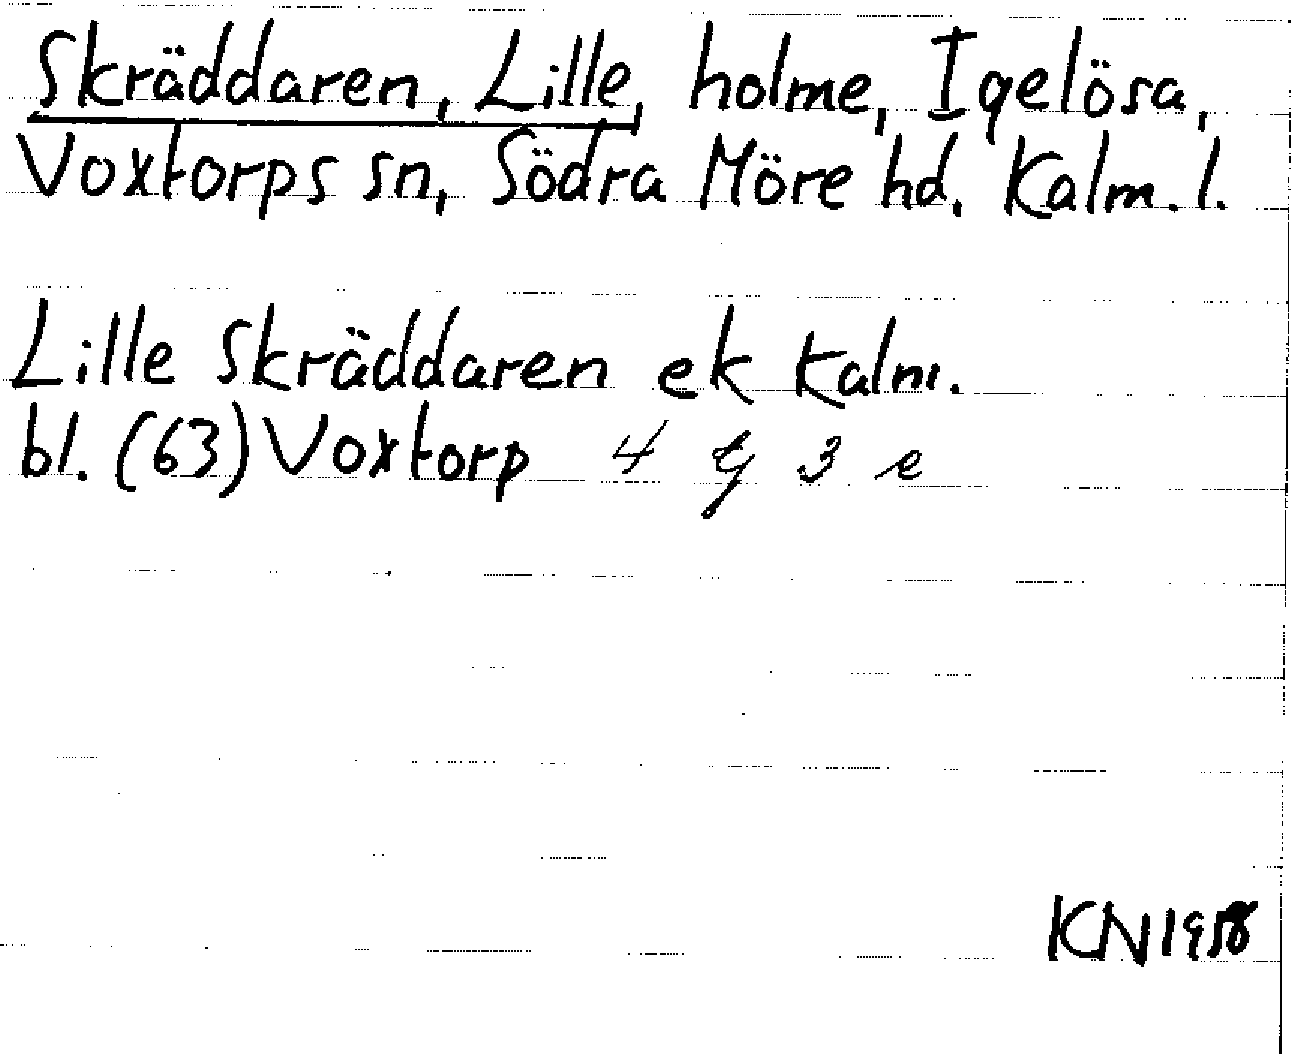 Skräddaren, Lille, holme, Igelösa,
Voxtorps sn, Södra Möre hd. Kalm. l.
Lille Skräddaren ek Kalm.
bl. (63) Voxtorp 4 g 3 e
KN 1958